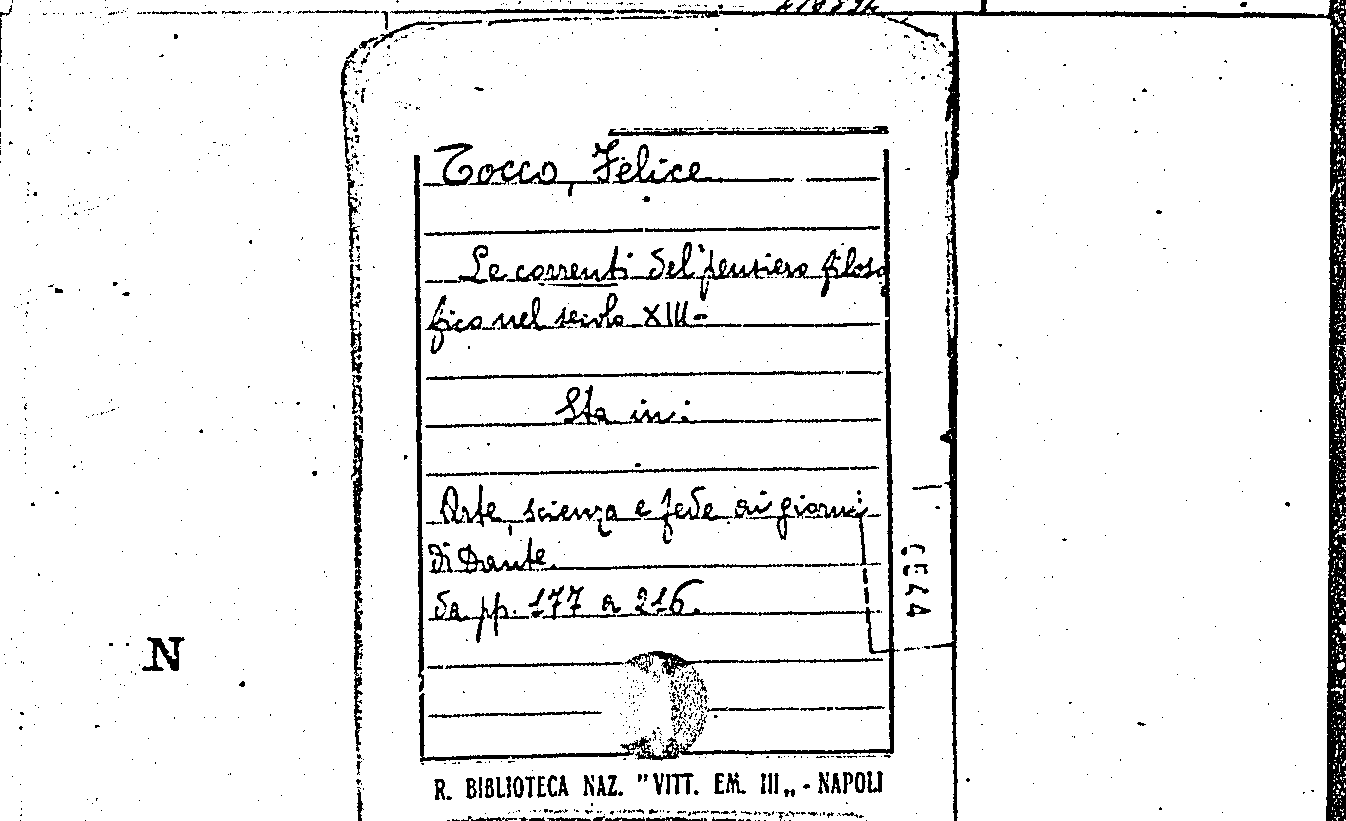 Tocco, Felice
Le correnti del pensiero filoso
fico nel secolo XIII-
Sta in:
Arte, scienza e fede ai giorni
di Dante.
da pp. 177 a 216.
N
R. BIBLIOTECA NAZ. "VITT. EM. III„ - NAPOLI